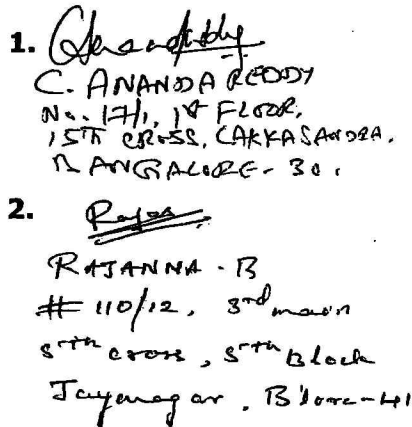 1.
C. ANANDA REDDY
No. 17/1, 1st FLOOR,
15TH CROSS, LAKKASANDRA,
BANGALORE - 30.
2. Rajan
RAJANNA - B
# 110/12, 3rd main
5th cross, 5th Block
Jayanagar, B'lore-41